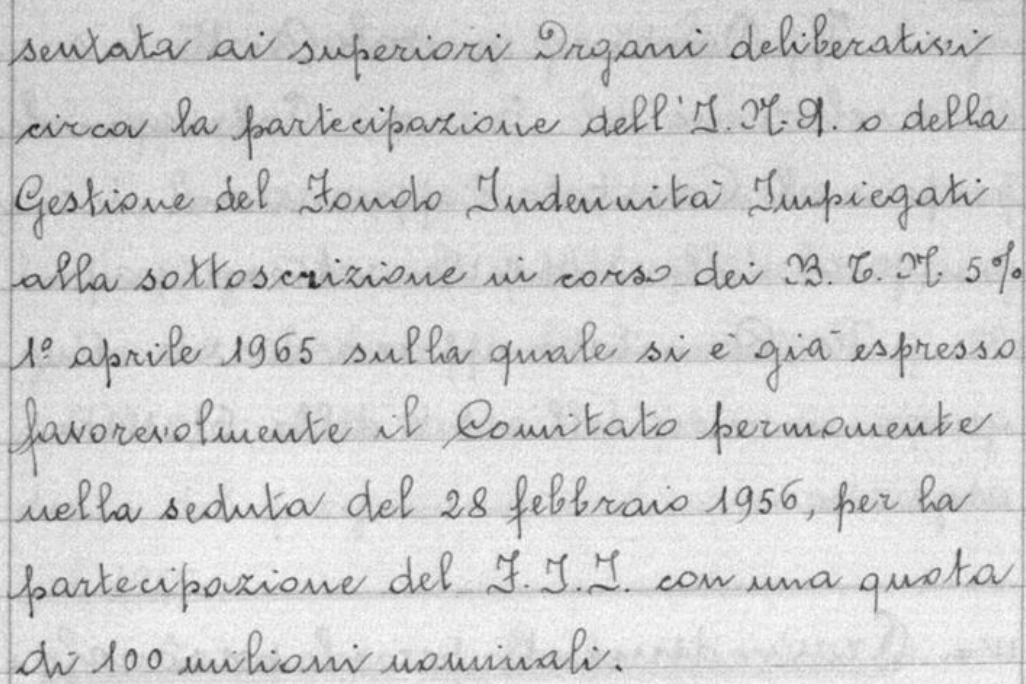 sentata ai superiori Organi deliberativi
circa la partecipazione dell'I.N.A. o della
Gestione del Fondo Indennità Impiegati
alla sottoscrizione in corso dei B.T.N. 5%
1º aprile 1965 sulla quale si è già espresso
favorevolmente il Comitato permanente
nella seduta del 28 febbraio 1956, per la
partecipazione del F.I.I. con una quota
di 100 milioni nominali.